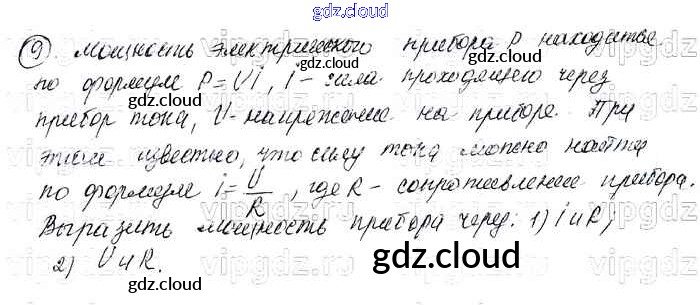 gdz.cloud
9 Мощность электрического прибора P находится
по формуле P=Ui, i - сила проходящего через
gdz.cloud gdz.cloud
прибор тока, U-напряжение на приборе. При
этом известно, что силу тока можно найти
gdz.cloud gdz.cloud
по формуле i=U/R, где R - сопротивление прибора.
Выразить мощность прибора через: 1) i и R;
2) U и R.
gdz.cloud gdz.cloud